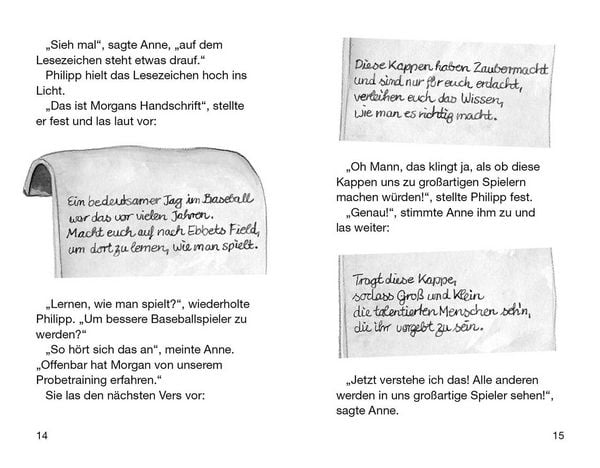 „Sieh mal“, sagte Anne, „auf dem
Lesezeichen steht etwas drauf.“
Philipp hielt das Lesezeichen hoch ins
Licht.
„Das ist Morgans Handschrift“, stellte
er fest und las laut vor:
Ein bedeutsamer Tag im Baseball
war das vor vielen Jahren.
Macht euch auf nach Ebbets Field,
um dort zu lernen, wie man spielt.
„Lernen, wie man spielt?“, wiederholte
Philipp. „Um bessere Baseballspieler zu
werden?“
„So hört sich das an“, meinte Anne.
„Offenbar hat Morgan von unserem
Probetraining erfahren.“
Sie las den nächsten Vers vor:
14
Diese Kappen haben Zaubermacht
und sind nur für euch erdacht,
verleihen euch das Wissen,
wie man es richtig macht.
„Oh Mann, das klingt ja, als ob diese
Kappen uns zu großartigen Spielern
machen würden!“, stellte Philipp fest.
„Genau!“, stimmte Anne ihm zu und
las weiter:
Tragt diese Kappe,
sodass Groß und Klein
die talentierten Menschen seh'n,
die ihr vorgebt zu sein.
„Jetzt verstehe ich das! Alle anderen
werden in uns großartige Spieler sehen!“,
sagte Anne.
15